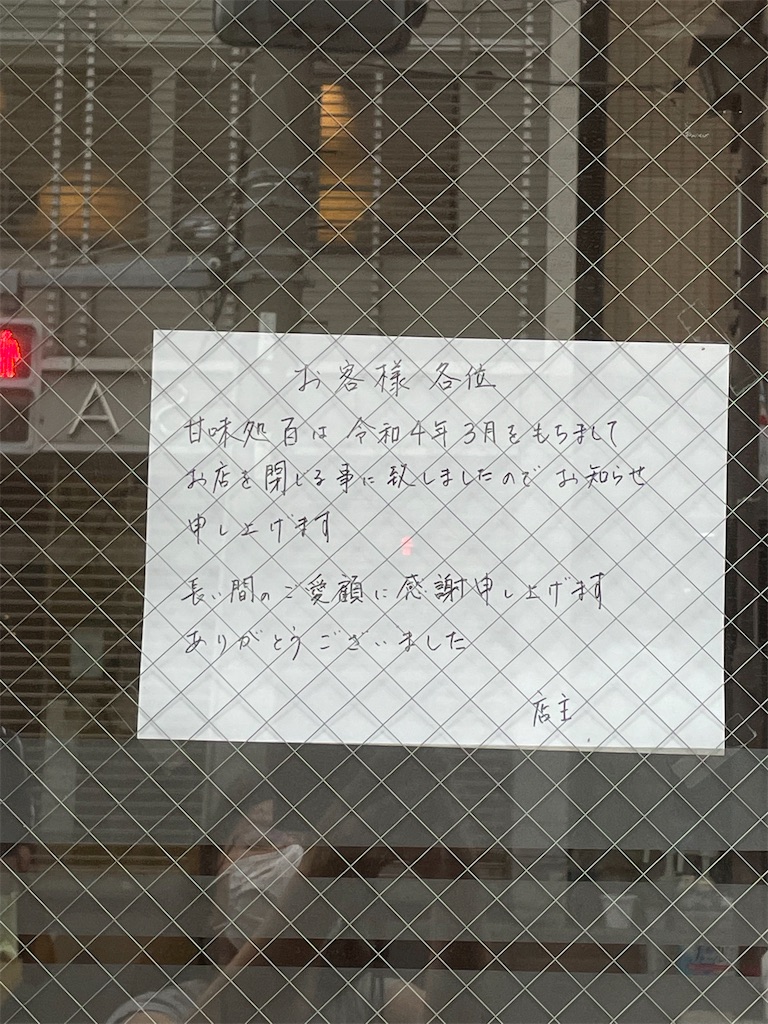 お客様 各位
甘味処 百は 令和4年3月をもちまして
お店を閉じる事に致しましたので お知らせ
申し上げます
長い間のご愛顧に感謝申し上げます
ありがとうございました
店主
A